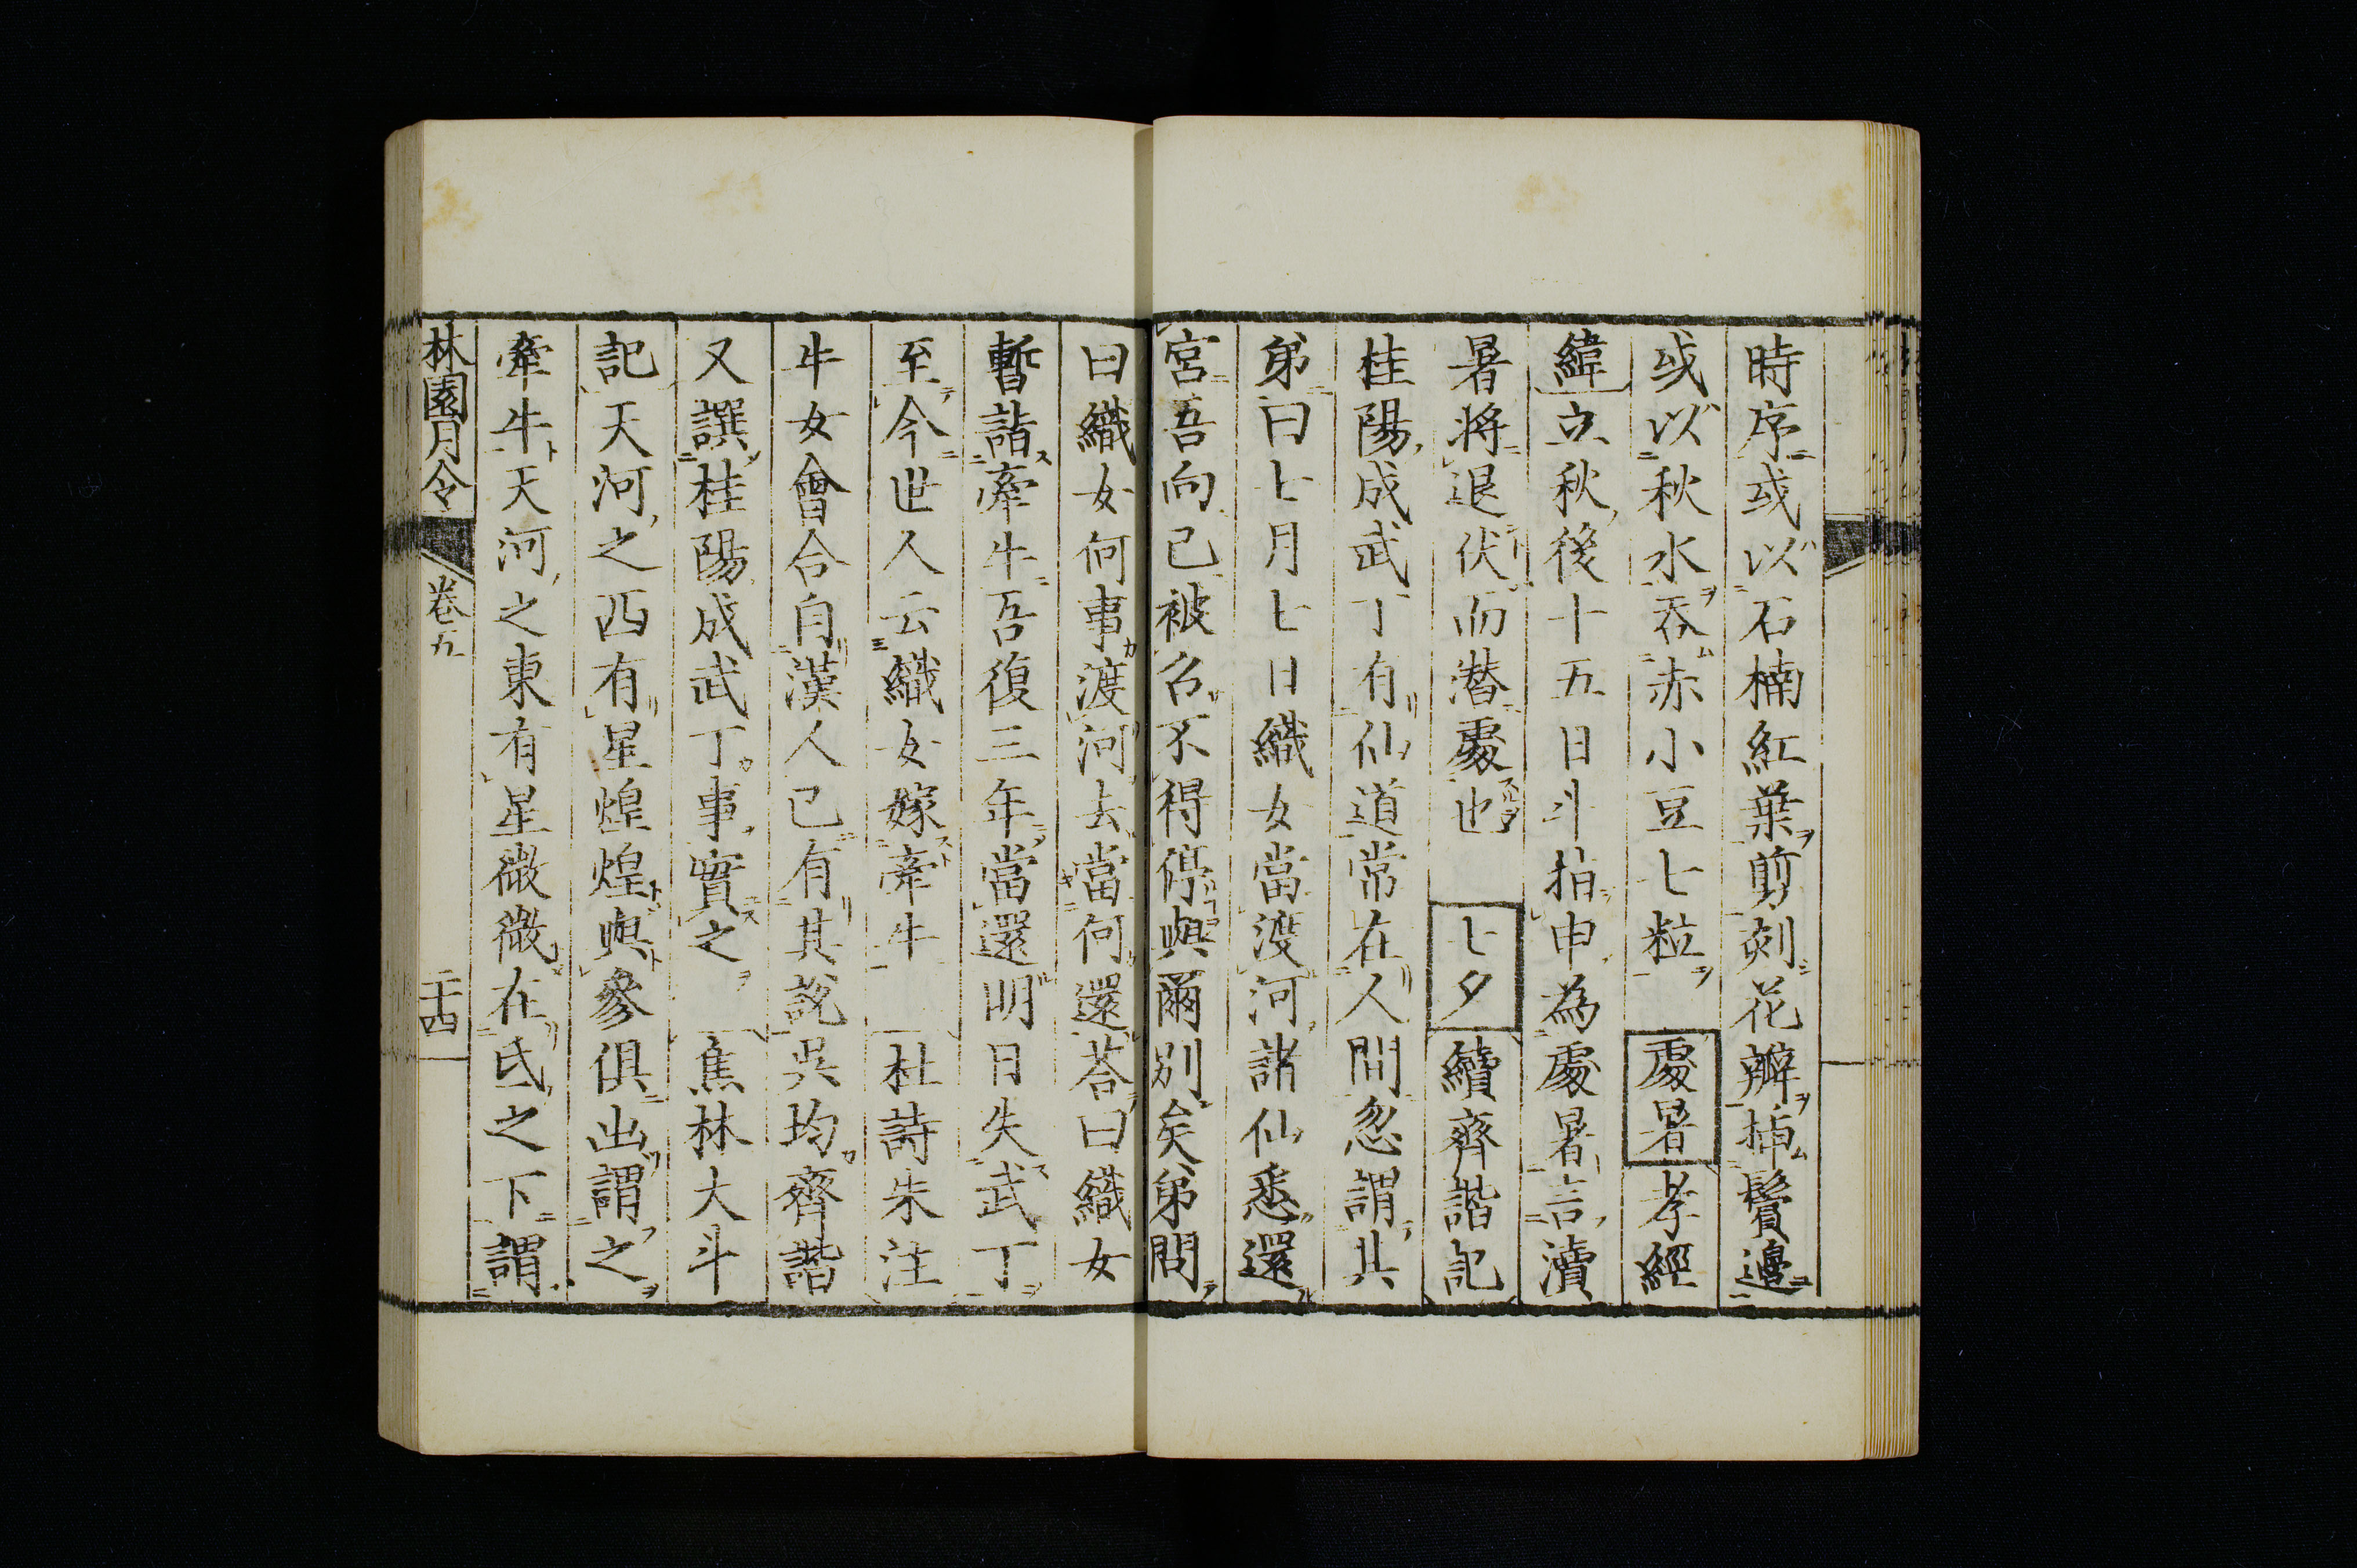 時序或以石楠紅葉剪刻花瓣插鬢邊
或以秋水呑赤小豆七粒　處暑孝經
緯立秋後十五日斗指申為處暑言瀆
暑將退伏而潜處也　七夕續齊諧記
桂陽成武丁有仙道常在人間忽謂其
弟曰七月七日織女當渡河諸仙悉還
宮吾向已被召不得停與爾別矣弟問
曰織女何事渡河去當何還荅曰織女
暫詣牽牛吾復三年當還明日失武丁
至今世人云織女嫁牽牛　杜詩朱注
牛女會合自漢人已有其說吳均齊諧
又譔桂陽成武丁事實之　焦林大斗
記天河之西有星煌煌與參俱出謂之
牽牛天河之東有星微微在氐之下謂
林園月令　卷五　二十四